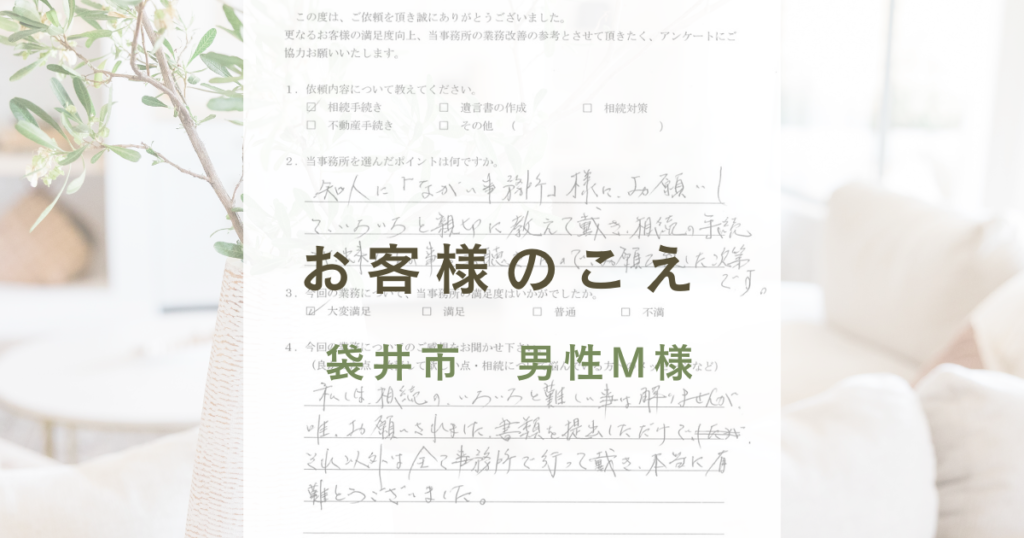 この度は、ご依頼を頂き誠にありがとうございました。
更なるお客様の満足度向上、当事務所の業務改善の参考とさせて頂きたく、アンケートにご
協力お願いいたします。
1．依頼内容について教えてください。
☑ 相続手続き □ 遺言書の作成 □ 相続対策
□ 不動産手続き □ その他 （ ）
2．当事務所を選んだポイントは何ですか。
知人に「ながい事務所」様に、お願いし
て、いろいろと親切に教えて戴き、相続の手続
お願い した次第
です。
お客様のこえ
3．今回の業務について、当事務所の満足度はいかがでしたか。
☑ 大変満足 □ 満足 □ 普通 □ 不満
4．今回の業務についてのご感想をお聞かせ下さい
袋井市 男性M様
私しは、相続の、いろいろと難しい事は解りませんが、
唯、お願いされました、書類を提出しただけで、
それ以外は全て事務所で行って戴き、本当に有
難とうございました。